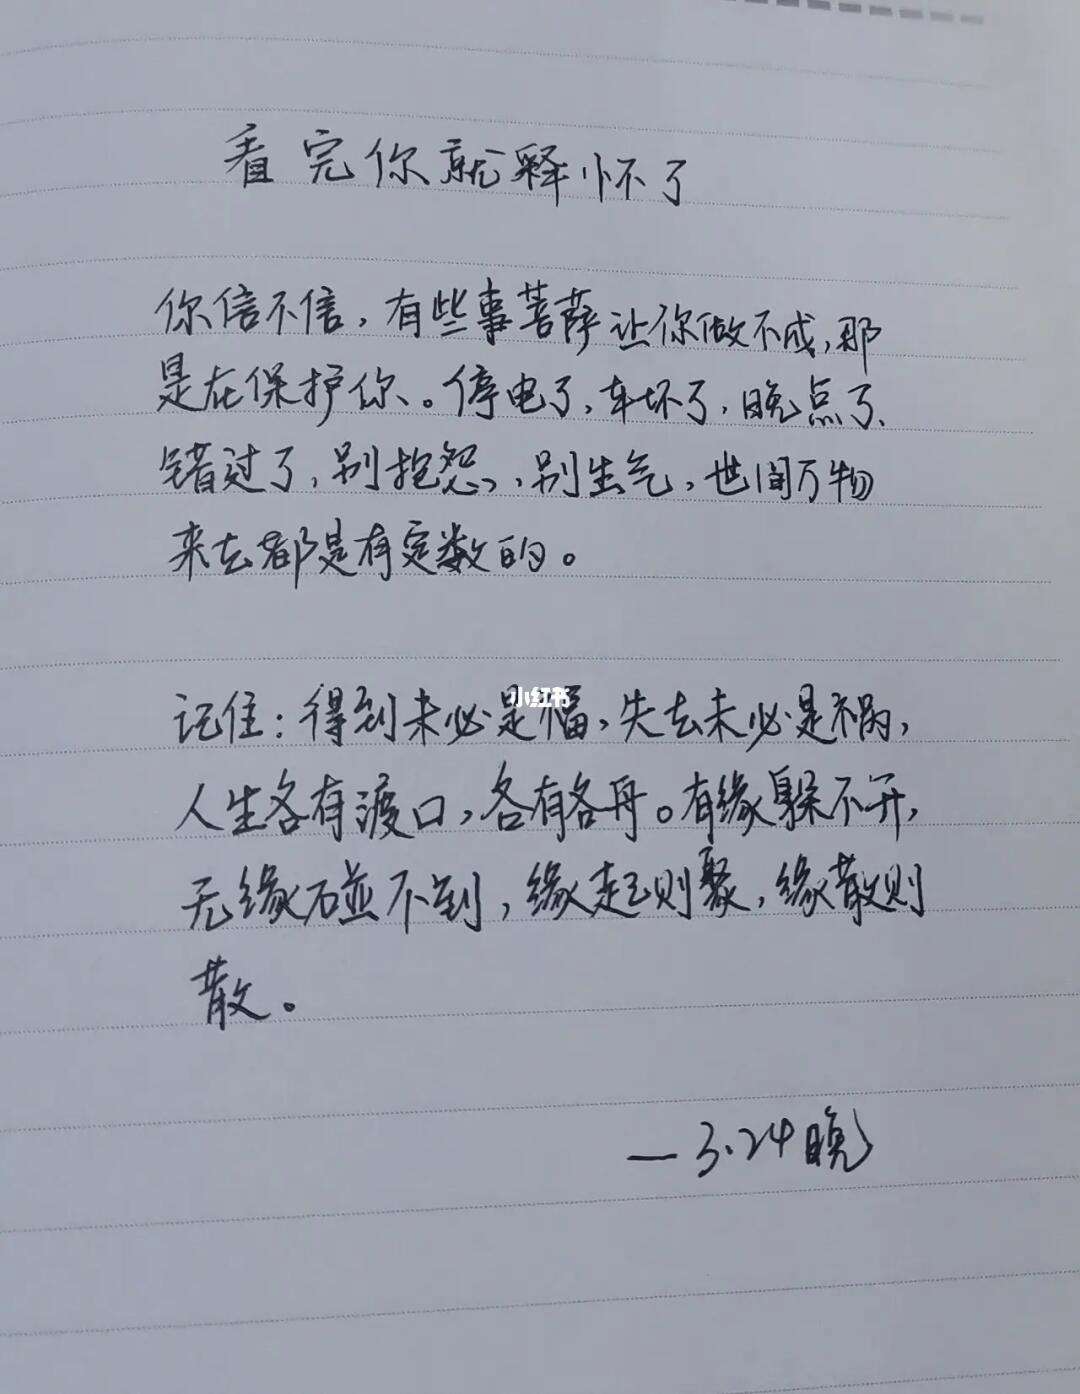 看完你就释怀了
你信不信，有些事菩萨让你做不成，那
是在保护你。停电了，车坏了，晚点了、
错过了，别抱怨，别生气，世间万物
来去都是有定数的。
小红书
记住：得到未必是福，失去未必是祸，
人生各有渡口，各有各舟。有缘躲不开，
无缘碰不到，缘起则聚，缘散则
散。
—3.24晚